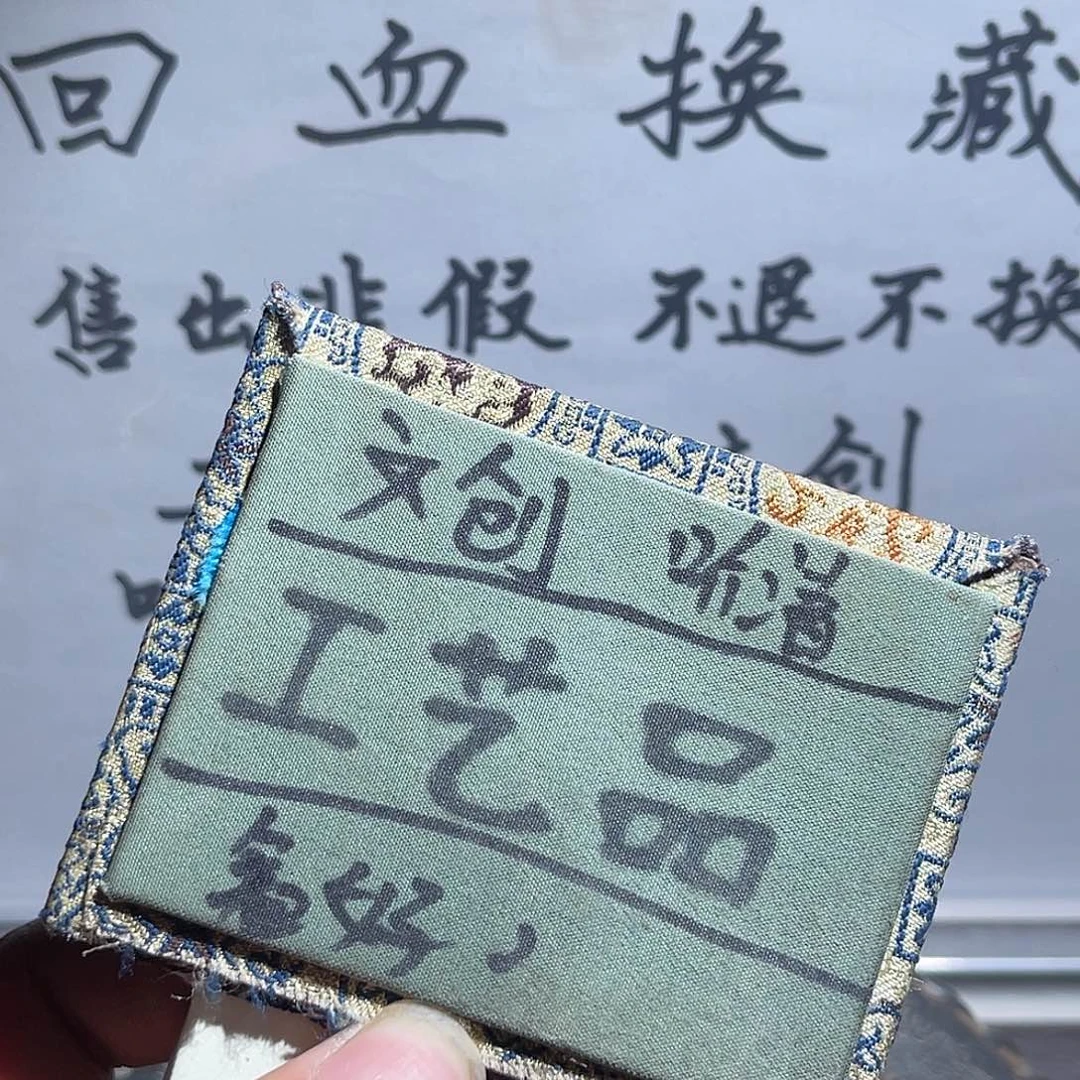 回血换藏
售出非假 不退不换
创
文创 吤渻
工艺品
喜好、